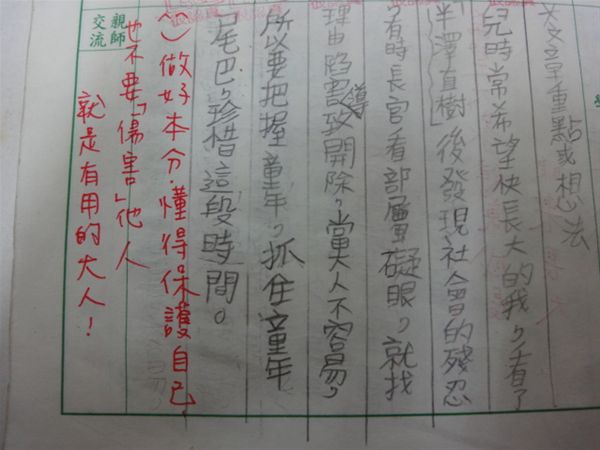 文字重點或想法
兒時常希望快長大的我，看了
「半澤直樹」後發現社會的殘忍
有時長官看部層礙眼，就找
理由陷害致導開除，當大人不容易，
所以要把握童年，抓住童年
尾巴，珍惜這段時間。
做好本分．懂得保護自己，
也不要「傷害」他人
就是有用的大人！
親師
交流